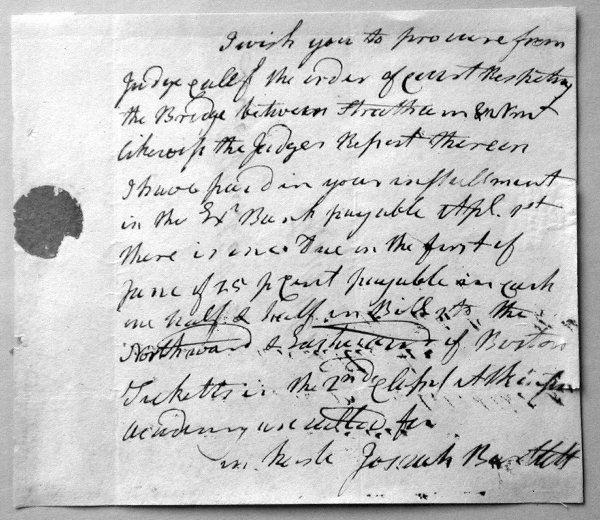 I wish you to procure from
Judge Calef the order of Court Respecting
the Bridge between Stratham & Nmt
likewise the Judges Report thereon
I have paid in your installment
in the Exr Bank payable Apl. 1st
there is one Due in the first of
June of 25 p Cent payable in cash
one half & half in Bills to the
Northward & Eastward of Boston
Ticketts in the 2nd Class of Atkinson
Academy are called for
in haste Josiah Bartlett